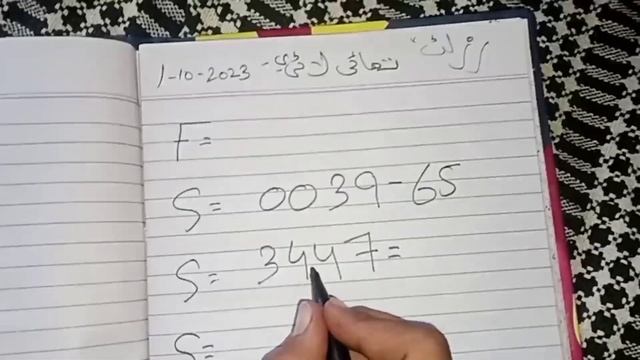 رزلٹ، تھائی لاٹری - 1-10-2023
F=
S= 0039-65
S= 3447=
S=